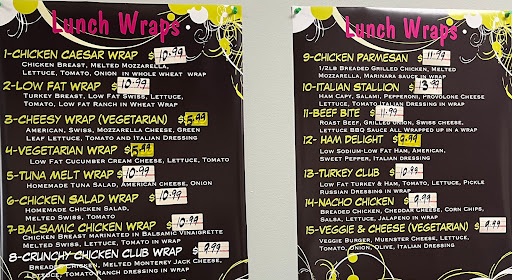 Lunch Wraps
1-Chicken Caesar Wrap $10.99
Chicken Breast, Melted Mozzarella,
Lettuce, Tomato, Onion in whole wheat wrap
2-Low Fat Wrap $10.99
Turkey Breast, Low Fat Swiss, Lettuce,
Tomato, Low fat Ranch in Wheat Wrap
3-Cheesy Wrap (Vegetarian) $8.99
American, Swiss, Mozzarella Cheese, Green
Leaf Lettuce, Tomato and Italian Dressing
4-Vegetarian Wrap $
Low Fat Cucumber Cream Cheese, Lettuce, Tomato
5-Tuna Melt Wrap $10.99
Homemade Tuna Salad, American cheese, Onion
6-Chicken Salad Wrap $10.99
Homemade Chicken Salad,
Melted Swiss, Tomato
7-Balsamic Chicken Wrap $10.99
Chicken Breast Marinated in Balsamic Vinaigrette
Melted Swiss, Lettuce, Tomato in wrap
8-Crunchy Chicken Club Wrap $9.99
Breaded Chicken, Melted Monterey Jack Cheese,
Lettuce, Tomato Ranch Dressing in wrap
Lunch Wraps
9-Chicken Parmesan $11.99
1/2lb Breaded Grilled Chicken, Melted
Mozzarella, Marinara sauce in wrap
10-Italian Stallion $13.99
Ham Capy, Salami, Pepperoni, Provolone Cheese
Lettuce, Tomato Italian Dressing in wrap
11-Beef Bite $11.99
Roast Beef, Grilled Onion, Swiss cheese,
Lettuce BBQ Sauce All wrapped up in a wrap
12- Ham Delight $9.99
Low Sodium-Low Fat Ham, American,
Sweet Pepper, Italian Dressing
13-Turkey Club $10.99
Low Fat Turkey & Ham, Tomato, Lettuce, Pickle
Russian Dressing in wrap
14-Nacho Chicken $9.99
Breaded Chicken, Cheddar Cheese, Corn Chips,
Salsa, Lettuce, Jalapeno in wrap
15-Veggie & Cheese (Vegetarian) $9.99
Veggie Burger, Muenster Cheese, Lettuce,
Tomato, Onion, Olive, Italian Dressing